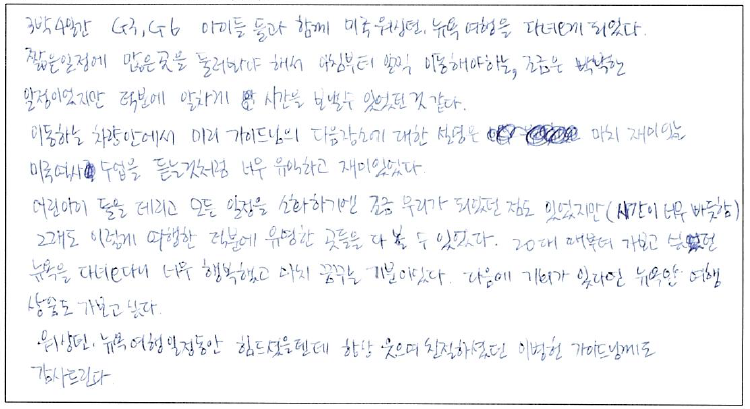 3박4일간 G3, G6 아이들 둘과 함께 미국 워싱턴, 뉴욕 여행을 다녀오게 되었다.
짧은일정에 많은곳을 둘러봐야 해서 아침부터 일찍 이동해야하는, 조금은 빡빡한
일정이었지만 덕분에 알차게 시간을 보낼수 있었던것 같다.
이동하는 차량안에서 미리 가이드님의 다음장소에 대한 설명은 마치 재미있는
미국역사 수업을 듣는것처럼 너무 유익하고 재미있었다.
어린아이 둘을 데리고 모든 일정을 소화하기엔 조금 무리가 되었던 점도 있었지만 (시간이 너무 빠듯함)
그래도 이렇게 여행한 덕분에 유명한 곳들을 다 볼 수 있었다. 20대 때부터 가보고 싶었던
뉴욕을 다녀오다니 너무 행복했고 마치 꿈꾸는 기분이었다. 다음에 기회가 있다면 뉴욕만 여행
상품도 가보고 싶다.
워싱턴, 뉴욕 여행 일정동안 힘드셨을텐데 항상 웃으며 친절하셨던 이병헌 가이드님께도
감사드린다